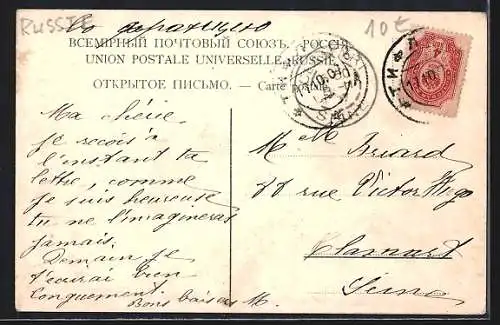 RUSSIE
10 t
Во францию
ВСЕМІРНЫЙ ПОЧТОВЫЙ СОЮЗЪ. РОССІЯ
UNION POSTALE UNIVERSELLE. RUSSIE
ОТКРЫТОЕ ПИСЬМО. — Carte postale
ТИФЛ
Ma chérie.
Je reçois à
l'instant ta
lettre, comme
je suis heureuse
tu ne l'imagineras
jamais.
Demain je
t'ecrirai bien
longuement.
Bons baisers M.
M Briard
rue Victor Hugo
Clamart
Seine